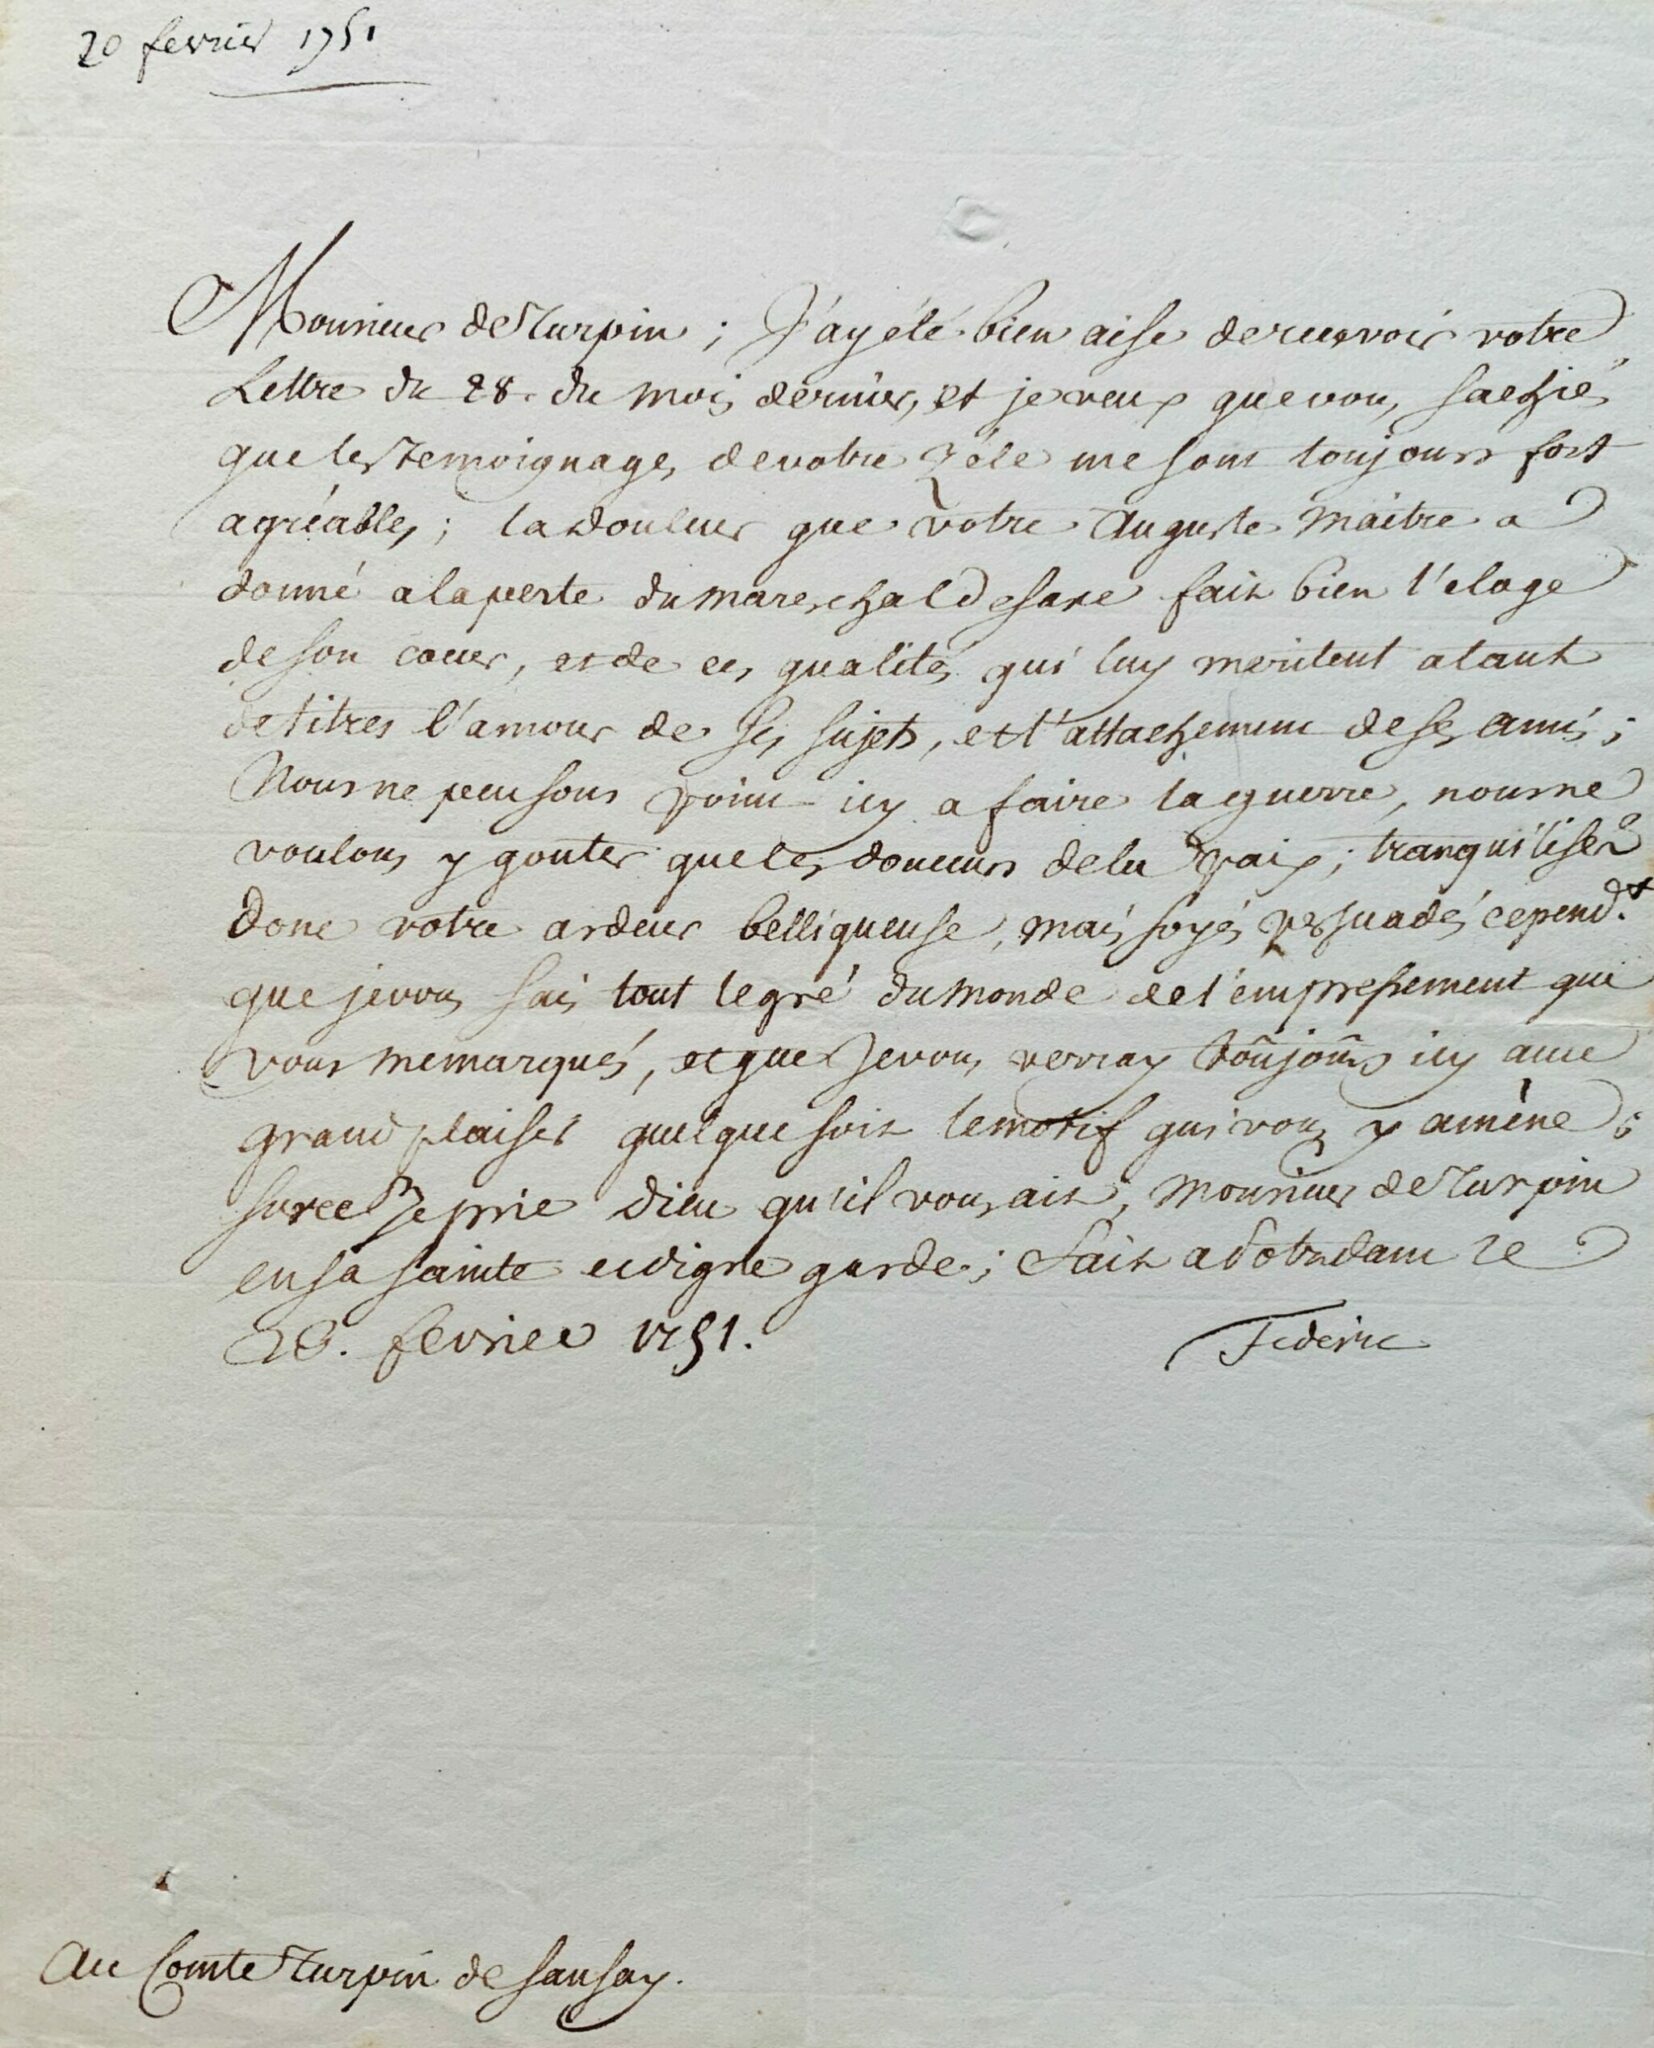 20 fevrier 1751
Monsieur de Turpin ; J'ay été bien aise de recevoir votre
Lettre du 28. du mois dernier, et je veux que vous sachiés
que les temoignages de votre zéle me sont toujours fort
agréables ; la douleur que votre Auguste Maitre a
donné a la perte du mareschal de saxe fait bien l'eloge
de son coeur, et de ces qualités qui luy meritent a tant
de titres l'amour de ses sujets, et l'attachement de ses amis ;
Nous ne pensons point icy a faire la guerre, nous ne
voulons y gouter que les douceurs de la paix ; tranquilisés
donc votre ardeur belliqueuse, mais soyés persuadé cepend.t
que je vous sais tout le gré du monde de l'empressement que
vous me marqués, et que Je vous verray toûjoûrs icy avec
grand plaisir quelque soit le motif qui vous y amène ;
sur ce Je prie Dieu qu'il vous ait, Monsieur de Turpin
en sa sainte et digne garde ; fait a Potzdam le
20. fevrier 1751. Federic
Au Comte Turpin de Sansay.